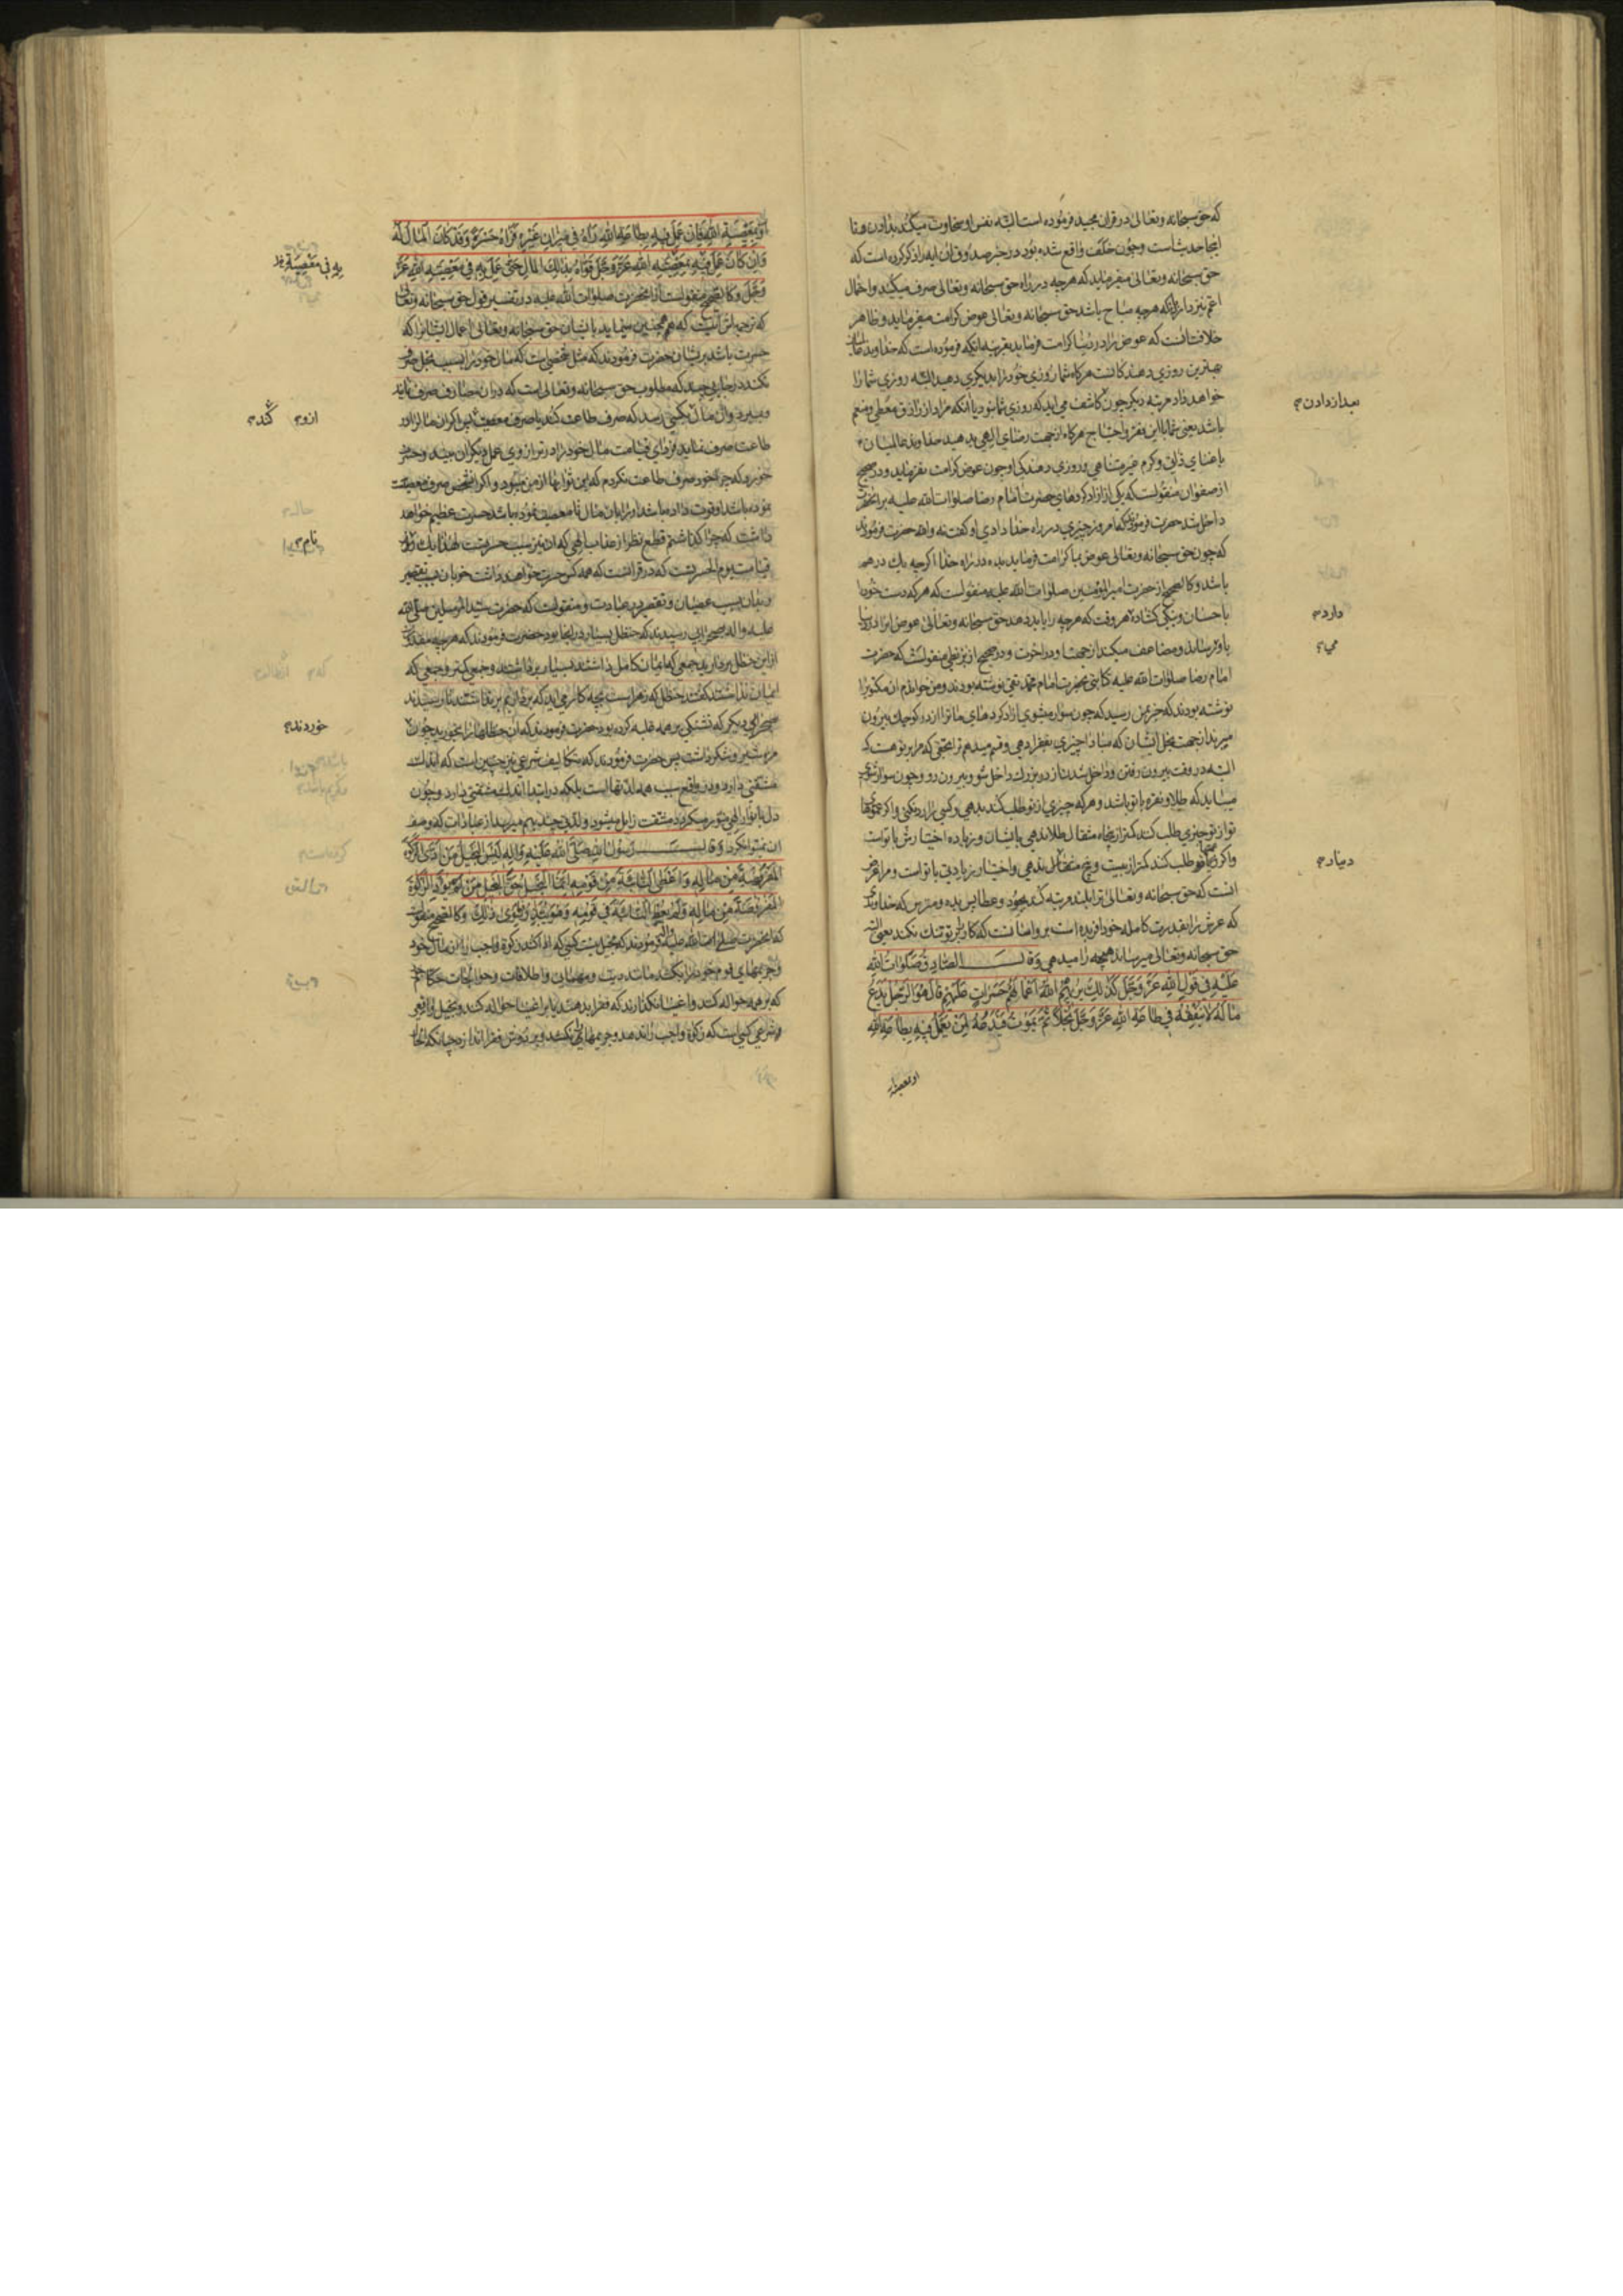 که حق سبحانه و تعالی در قران مجید فرموده است البته نفس او سخاوت میکند بدادن و تا
اینجا حدیث است و چون خلف واقع شده بود در خبر صدوق ان ایه را ذکر کرده است که
حق سبحانه و تعالی میفرماید که هر چه در راه حق سبحانه و تعالی صرف میکنید و احتمال
اعم نیز دارد که هر چه مباح باشد حق سبحانه و تعالی عوض کرامت میفرماید و ظاهر
خلافت انست که عوض را در دنیا کرامت فرماید بقرینه انکه فرموده است که خداوند شما
بهترین روزی دهندکانست هرکاه شما روزی خود را بدیکری دهید البته روزی شما را
خواهد داد مرتبه دیکر چون کاشف می اید که روزی شما نبود یا انکه مراد از رازق معطی و منعم
باشد یعنی شما با این فقر و احتیاج هرکاه از جهت رضای الهی بدهید خداوند عالمیان
با غنای ذاتی و کرم غیر متناهی و روزی دهندکی او چون عوض کرامت نفرماید و در صحیح
از صفوان منقولست که یکی از ازاد کردهای حضرت امام رضا صلوات الله علیه بر انحضرت
داخل شد حضرت فرمودند که امروز چیزی در راه خدا دادی او کفت نه والله حضرت فرمودند
که چون حق سبحانه و تعالی عوض بما کرامت فرماید بده در راه خدا اکرچه یک درهم
باشد و کالصحیح از حضرت امیر المؤمنین صلوات الله علیه منقولست که هر که دست خود را
باحسان و نیکی کشاده هر وقت که هر چه را یابد دهد حق سبحانه و تعالی عوض انرا در دنیا
باو میرساند و مضاعف میکند از جهت او در اخرت و در صحیح از بزنطی منقولست که حضرت
امام رضا صلوات الله علیه کتابتی بحضرت امام محمد تقی نوشته بودند و من خواندم ان مکتوب را
نوشته بودند که خبر بمن رسید که چون سوار میشوی ازاد کردهای ما ترا از در کوچک بیرون
میبرند از جهت بخل ایشان که مبادا چیزی بفقرا دهی و قسم میدهم ترا بحقی که مرا بر تو هست که
البته در وقت بیرون رفتن و داخل شدن از در بزرک داخل شو و بیرون رو و چون سوار شوی
میباید که طلا و نقره با تو باشد و هر که چیزی از تو طلب کند بدهی و کسی را رد نکنی و اکر عموهای
تو از تو چیزی طلب کنند کمتر از پنجاه مثقال طلا ندهی بایشان و زیاده اختیارش با تواست
و اکر عمهای تو طلب کنند کمتر از بیست و پنج مثقال ندهی و اختیار زیادتی با تواست و مرا غرض
انست که حق سبحانه و تعالی ترا بلند مرتبه کند بجود و عطا پس بده و مترس که خداوندی
که عرش را بقدرت کامله خود افریده است بر او اسانست که کار بر تو تنک نکند یعنی البته
حق سبحانه و تعالی میرساند هر چه را میدهی وَقالَ الصّادِقُ صَلَواتُ اللهِ
عَلَیْهِ فِی قَوْلِ اللهِ عَزَّ وَجَلَّ کَذٰلِکَ یُرِیهِمُ اللهُ اَعْمالَهُمْ حَسَراتٍ عَلَیْهِمْ قالَ هُوَ الرَّجُلُ یَدَعُ
مالَهُ لا یُنْفِقُهُ فِی طاعَةِ اللهِ عَزَّ وَجَلَّ بُخْلاً ثُمَّ یَمُوتُ فَیَدَعُهُ لِمَنْ یَعْمَلُ فِیهِ بِطاعَةِ اللهِ
او بمعصیة
بعد از دادن
دارد
می
دینار
اَوْ بِمَعْصِیَةِ اللهِ فَاِنْ عَمِلَ فِیهِ بِطاعَةِ اللهِ رَاٰهُ فِی مِیزانِ غَیْرِهِ فَرَاٰهُ حَسْرَةً وَقَدْ کانَ الْمالُ لَهُ
وَاِنْ کانَ عَمِلَ فِیهِ بِمَعْصِیَةِ اللهِ عَزَّ وَجَلَّ قَوّاهُ بِذٰلِکَ الْمالِ حَتّی عَمِلَ بِهِ فِی مَعْصِیَةِ اللهِ عَزَّ
وَجَلَّ و کالصحیح منقولست از انحضرت صلوات الله علیه در تفسیر قول حق سبحانه و تعالی
که ترجمه اش اینست که همچنین مینماید بایشان حق سبحانه و تعالی اعمال ایشانرا که
حسرت باشد بریشان حضرت فرمودند که مثل شخصی است که مال خود را بسبب بخل صرف
نکند در جایی چند که مطلوب حق سبحانه و تعالی است که در ان مصارف صرف نماید
و بمیرد و ان مال بکسی رسد که صرف طاعت کند یا صرف معصیت پس اکر ان مال را در
طاعت صرف نماید فردای قیامت مال خود را در ترازوی عمل دیکران بیند و حسرت
خورد که چرا خود صرف طاعت نکردم که این ثوابها از من میبود و اکر انشخص صرف معصیت
نموده باشد و قوت داده باشد او را بان مال تا معصیت نموده باشد حسرت عظیم خواهد
داشت که چرا کذاشتم قطع نظر از عذاب الهی که ان نیز سبب حسرتست لهذا یک نام
قیامت یوم الحسرتست که در قرانست که همه کس حسرت خواهند داشت خوبان بسبب تقصیر
و بدان بسبب عصیان و تقصیر در عبادت و منقولست که حضرت سید المرسلین صلی الله
علیه و اله بصحرایی رسیدند که حنظل بسیار در انجا بود حضرت فرمودند که هر چه مقدور
از این حنظل بردارید جمعی که ایمان کامل داشتند بسیار برداشتند و جمعی کمتر و جمعی که
ایمان نداشتند کفتند حنظل که زهر است بچه کار می اید که برداریم بر نداشتند تا رسیدند
بصحرای دیکر که تشنکی بر همه غلبه کرده بود حضرت فرمودند که ان حنظلها را بخورید چون
مزه شیر و شکر داشت پس حضرت فرمودند که تکالیف شرعی نیز چنین است که اندک
مشقتی دارد و در واقع سبب همه لذتهاست بلکه در ابتدا اندک مشقتی دارد و چون
دل بانوار الهی منور میکردد مشقت زایل میشود و لذتی چند بهم میرسد از عبادات که وصف
ان نمیتوان کرد وَقالَ رَسُولُ اللهِ صَلَّی اللهُ عَلَیْهِ وَاٰلِهِ لَیْسَ الْبَخِیلُ مَنْ اَدَّی الزَّکوةَ
الْمَفْرُوضَةَ مِنْ مالِهِ وَاَعْطَی النّائِبَةَ فِی قَوْمِهِ اِنَّمَا الْبَخِیلُ حَقُّ الْبَخِیلِ مَنْ لَمْ یُؤَدِّ الزَّکوةَ
الْمَفْرُوضَةَ مِنْ مالِهِ وَلَمْ یُعْطِ النّائِبَةَ فِی قَوْمِهِ وَهُوَ یُبَذِّرُ فِیما سِوی ذٰلِکَ و کالصحیح منقولست
که انحضرت صلی الله علیه و اله فرمودند که بخیل نیست کسی که ادا کند زکوة واجب را از مال خود
و جریمهای قوم خود را بکشد مانند دیت و مهمان و اطلاقات و حوالجات حکام
که بر همه حواله کنند و اغنیا نکذارند که فقرا بدهند یا بر اغنیا حواله کنند و بخیل واقعی
و شرعی کسی است که زکوة واجب را ندهد و جریمها را نکشد و بر دوش فقرا اندازد چنانکه الحال
به فی معصیة
ازو کند
نام
خوردند